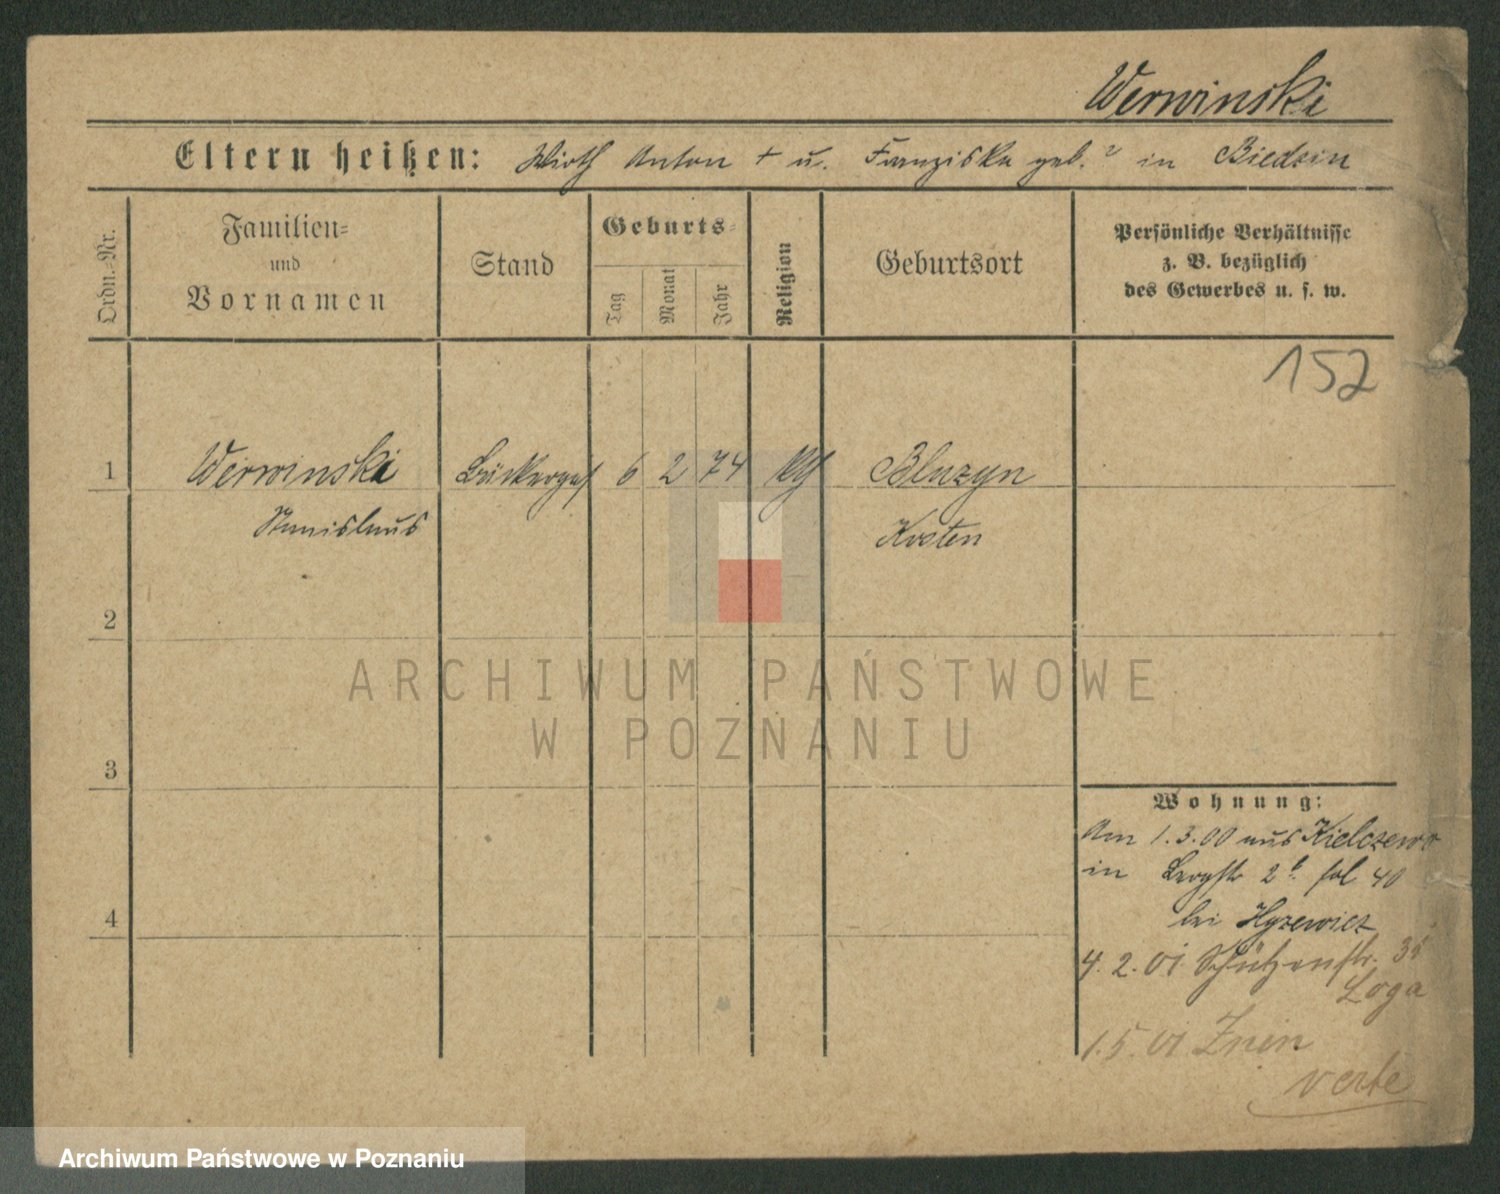 Werwinski
Eltern heißen: Wirth Anton + u. Franziska geb. ? in Biedzin
Ordn.-Nr.
Familien-
und
Vornamen
Stand
Geburts-
Tag
Monat
Jahr
Religion
Geburtsort
Persönliche Verhältnisse
z. B. bezüglich
des Gewerbes u. s. w.
152
1 Werwinski Bäckerges 6 2 74 kth Bluzyn
Stanislaus Kosten
2
ARCHIWUM PAŃSTWOWE
W POZNANIU
3
Wohnung:
Am 1.3.00 aus Kielczewo
in Bergstr 2b fol 40
bei Hyzewicz
4
4.2.01 Schützenstr. 35
Loga
1.5.01 Znin
verte
Archiwum Państwowe w Poznaniu